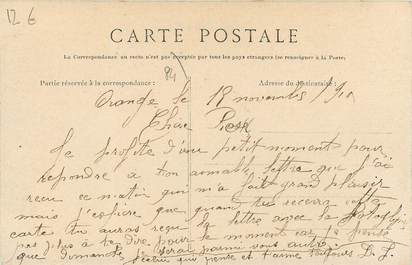 12 €
CARTE POSTALE
La Correspondance au recto n'est pas acceptée par tous les pays étrangers (se renseigner à la Poste)
Partie réservée à la correspondance: Adresse du destinataire:
(84)
Orange le 18 novembre
Chère
Je profite d'un petit moment pour
repondre a ton aimable lettre que j'ai
recu ce matin qui m'a fait grand plaisir
mais j'espère que quand tu recevra cette
carte tu auras reçu la lettre avec la
pas plus à te dire pour le moment car je pense
que demanche je serai parmi vous autre
qui pense et t'aime toujours D. J.